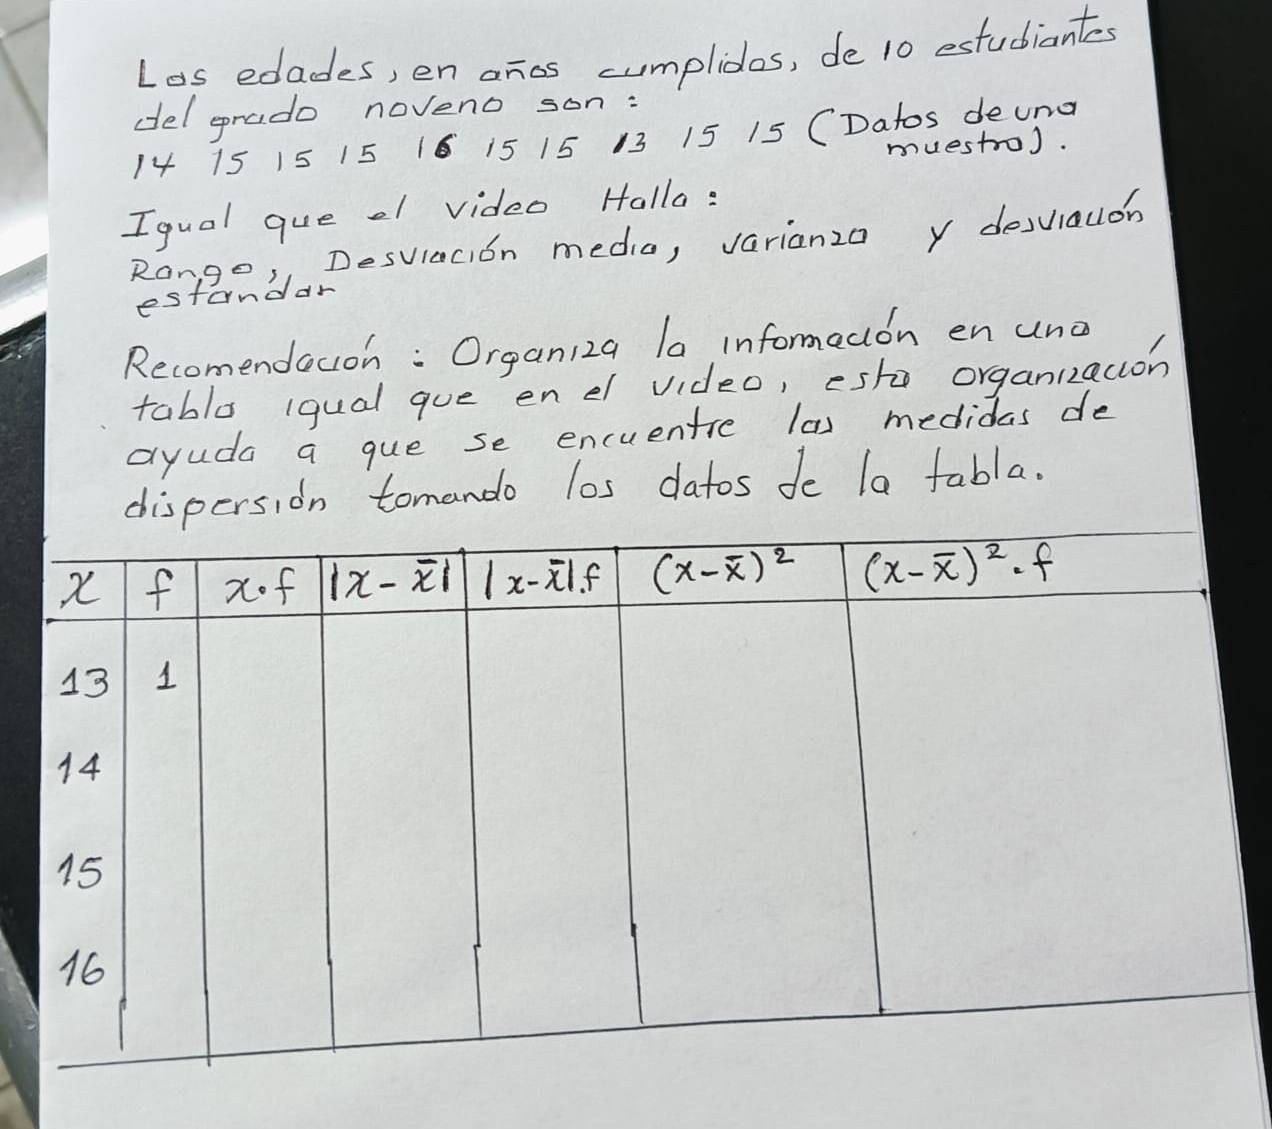 Las edades, en años cumplidos, de 10 estudiantes
del grado noveno son:
14 15 15 15 16 15 15 13 15 15 (Datos de una
muestra).
Igual que el video Halla:
Rango, Desviación media, varianza y desviación
estandar
Recomendación: Organiza la información en una
tabla igual que en el video, esta organización
ayuda a que se encuentre las medidas de
dispersión tomando los datos de la tabla.
x f x·f |x-x̄| |x-x̄|.f (x-x̄)² (x-x̄)²·f
13 1
14
15
16